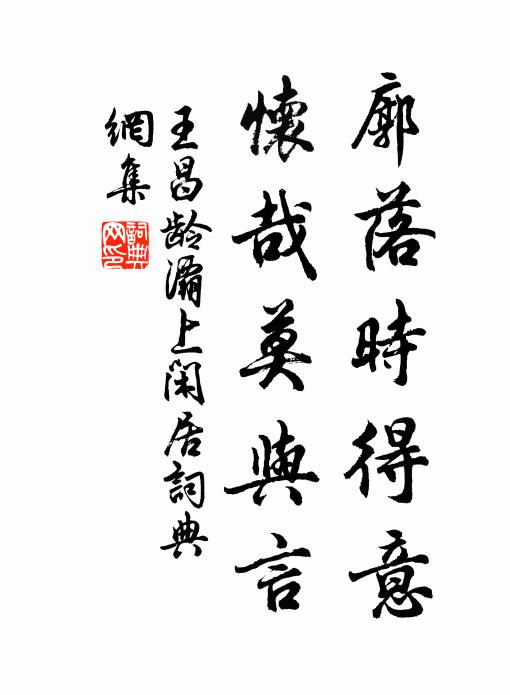 廓落時得意
懷哉莫與言
王昌龄灞上閑居詞典
網集
詞典网印